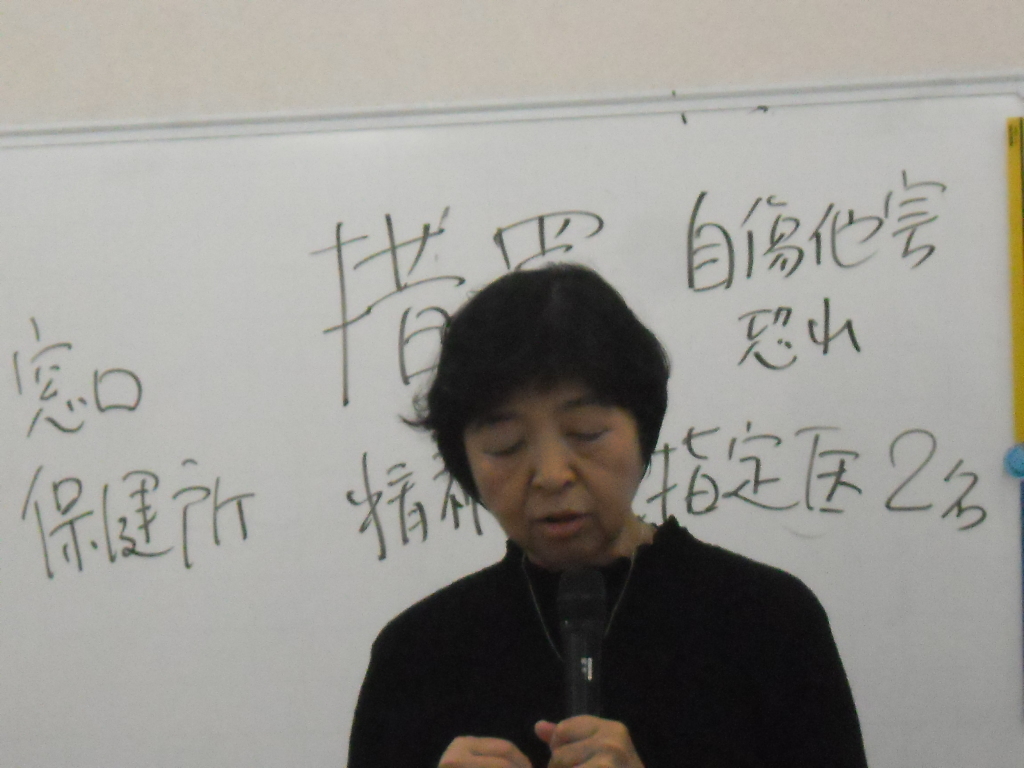 措置
自傷他害
恐れ
窓口
保健所
精神 指定医2名